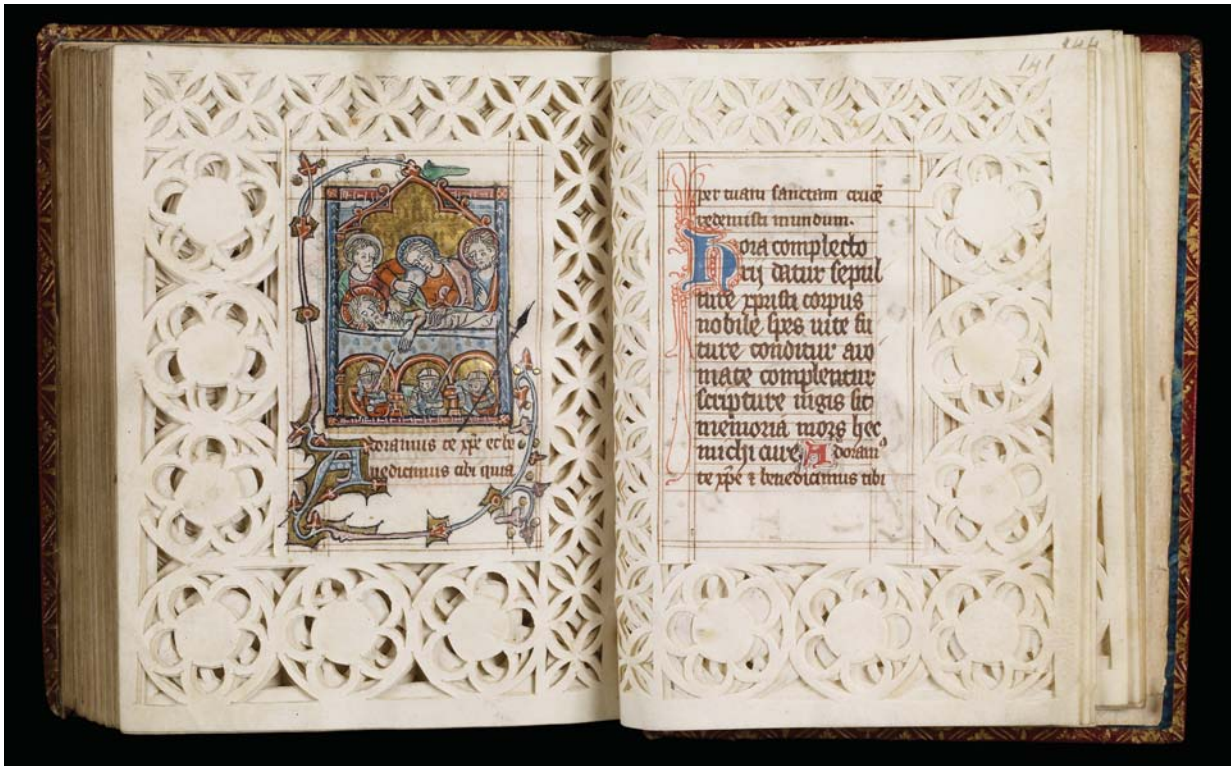 Adoramus te xpe et be
nedicimus tibi quia
141
per tuam sanctam crucē
redemisti mundum.
Hora complecto
rij datur sepul
ture xpristi corpus
nobile spes uite fu
ture conditur aro
mate complentur
scripture iugis sit
memoria mors hec
michi cure Adoram⁹
te xp̄e ⁊ benedicimus tibi